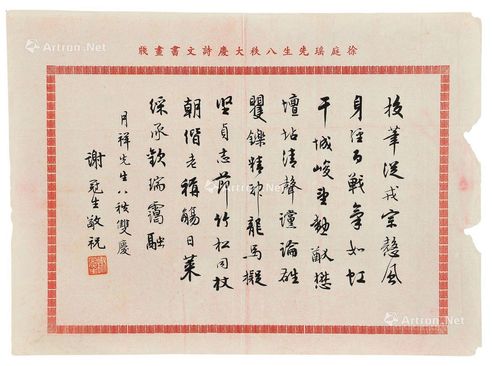 徐庭瑤先生八秩大慶詩文書畫牋
投筆從戎宗愨風
身經百戰氣如虹
干城峻望勳猷懋
壇坫清聲讜論雄
矍鑠精神龍馬擬
堅貞志節竹松同杖
朝偕老稱觴日萊
綵承歡瑞靄融
月祥先生八秩雙慶
謝冠生敬祝
Artron.Net
Artron.Net